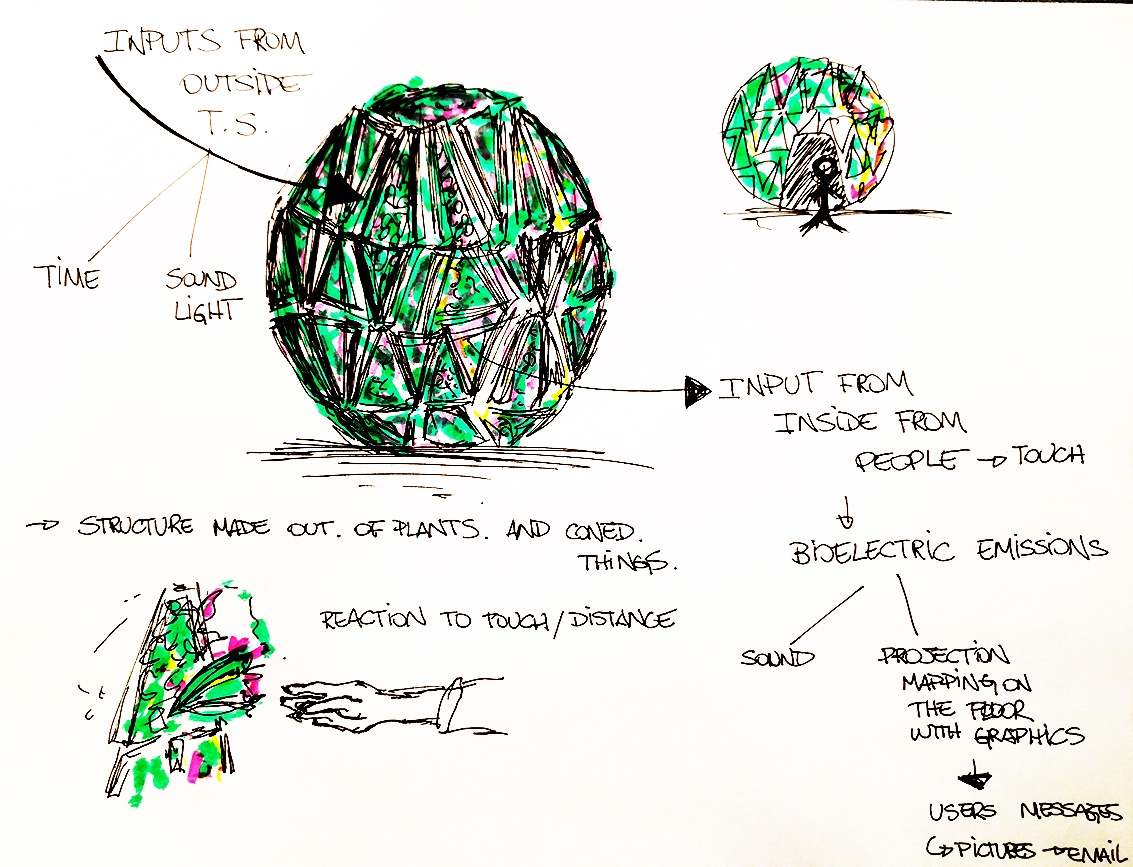 INPUTS FROM
OUTSIDE
T.S.
TIME
SOUND
LIGHT
INPUT FROM
INSIDE FROM
PEOPLE → TOUCH
BIOELECTRIC EMISSIONS
SOUND
PROJECTION
MAPPING ON
THE FLOOR
WITH GRAPHICS
USERS MESSAGES
↳ PICTURES → EMAIL
→ STRUCTURE MADE OUT. OF PLANTS. AND CONED.
THINGS.
REACTION TO TOUCH/DISTANCE